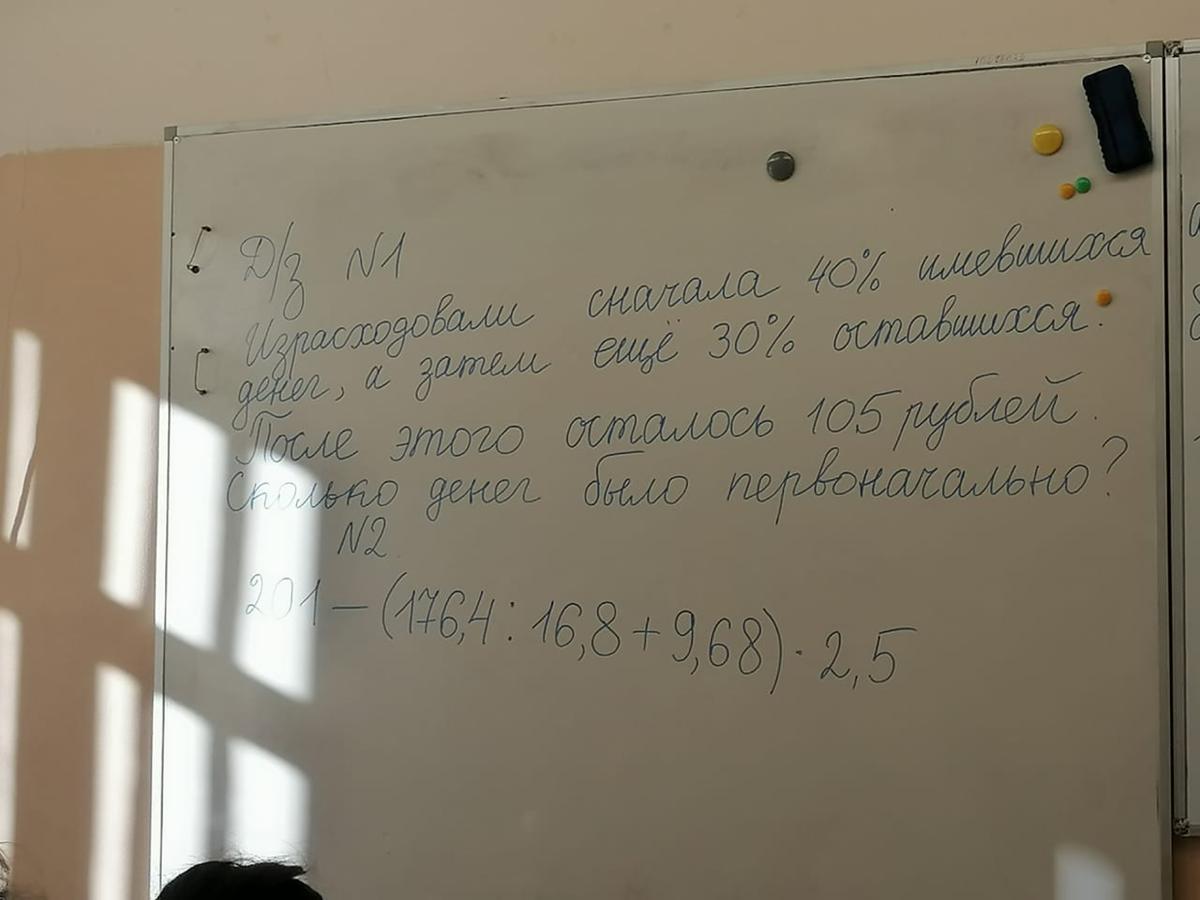 Д/з N1
Израсходовали сначала 40% имевшихся
денег, а затем ещё 30% оставшихся.
После этого осталось 105 рублей.
Сколько денег было первоначально?
N2
201 – (176,4 : 16,8 + 9,68) · 2,5